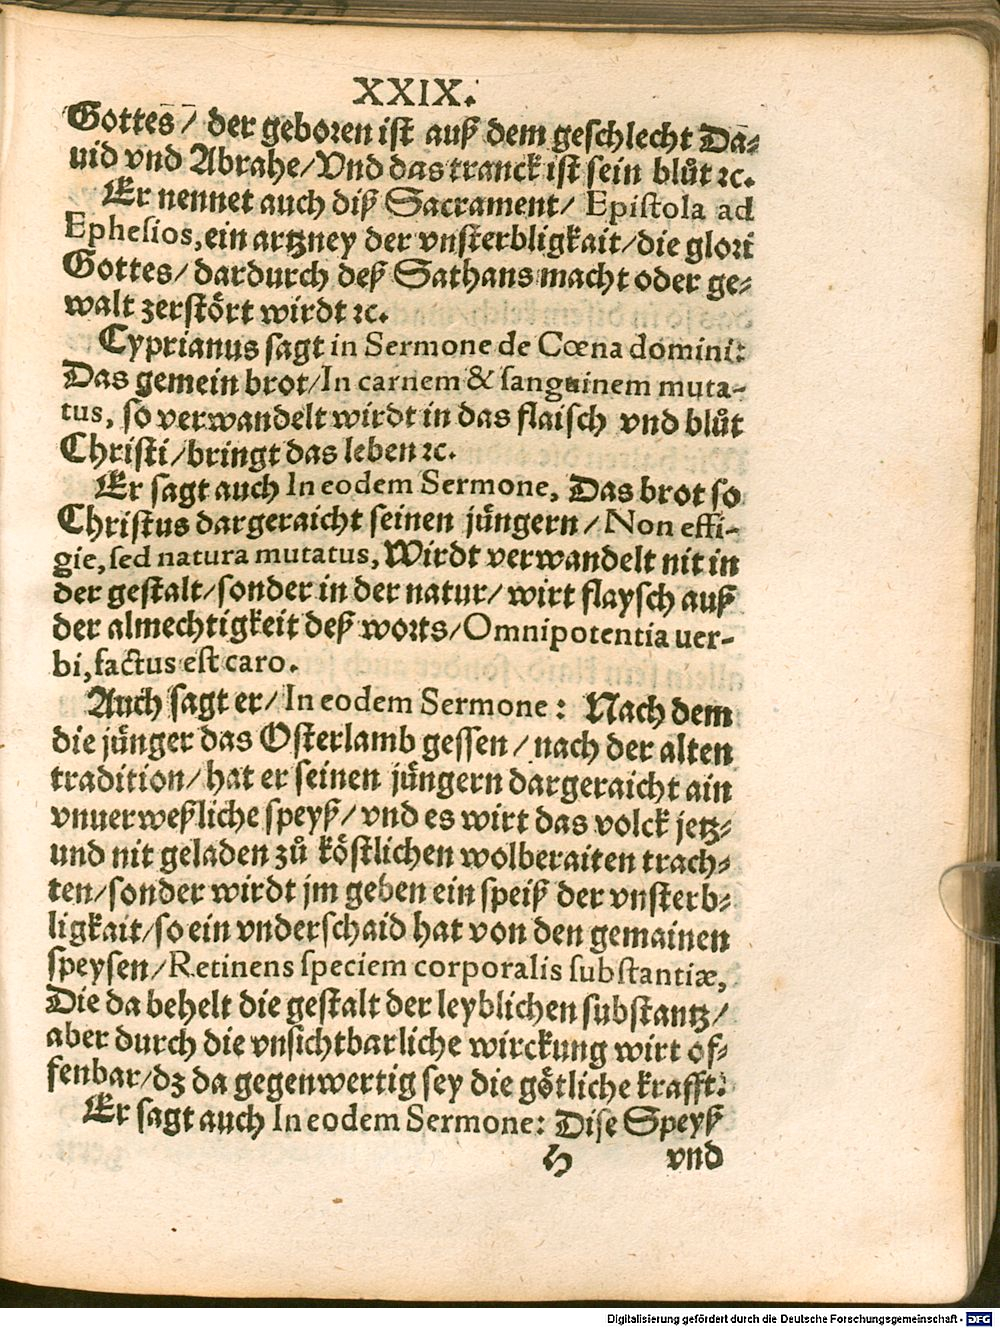 XXIX.
Gottes / der geboꝛen ist auß dem geschlecht Da⸗
uid vnd Abrahe / Vnd das tranck ist sein blůt ꝛc.
Er nennet auch diß Sacrament / Epistola ad
Ephesios, ein artzney der vnsterbligkait / die gloꝛi
Gottes / dardurch deß Sathans macht oder ge⸗
walt zerstört wirdt ꝛc.
Cyprianus sagt in Sermone de Cœna domini:
Das gemein brot / In carnem & sanguinem muta-
tus, so verwandelt wirdt in das flaisch vnd blůt
Christi / bringt das leben ꝛc.
Er sagt auch In eodem Sermone, Das brot so
Christus dargeraicht seinen jüngern / Non effi-
gie, sed natura mutatus, Wirdt verwandelt nit in
der gestalt / sonder in der natur / wirt flaysch auß
der almechtigkeit deß woꝛts / Omnipotentia uer-
bi, factus est caro.
Auch sagt er / In eodem Sermone: Nach dem
die jünger das Osterlamb gessen / nach der alten
tradition / hat er seinen jüngern dargeraicht ain
vnuerweßliche speyß / vnd es wirt das volck jetz⸗
und nit geladen zů köstlichen wolberaiten trach⸗
ten / sonder wirdt jm geben ein speiß der vnsterb⸗
ligkait / so ein vnderschaid hat von den gemainen
speysen / Retinens speciem corporalis substantiæ,
Die da behelt die gestalt der leyblichen substantz /
aber durch die vnsichtbarliche wirckung wirt of⸗
fenbar / dz da gegenwertig sey die götliche krafft.
Er sagt auch In eodem Sermone: Dise Speyß
H vnd
Digitalisierung gefördert durch die Deutsche Forschungsgemeinschaft - DFG